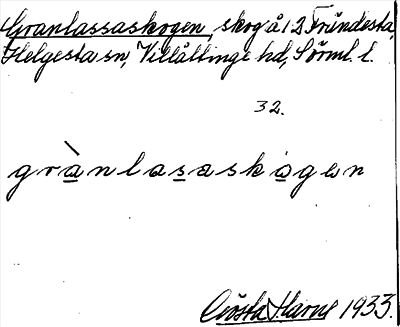 Granlassaskogen, skog å 12 Fründesta,
Helgesta sn, Villåttinge hd, Sörml. l.
32.
grànlasaskogen
Gösta Harne 1933.